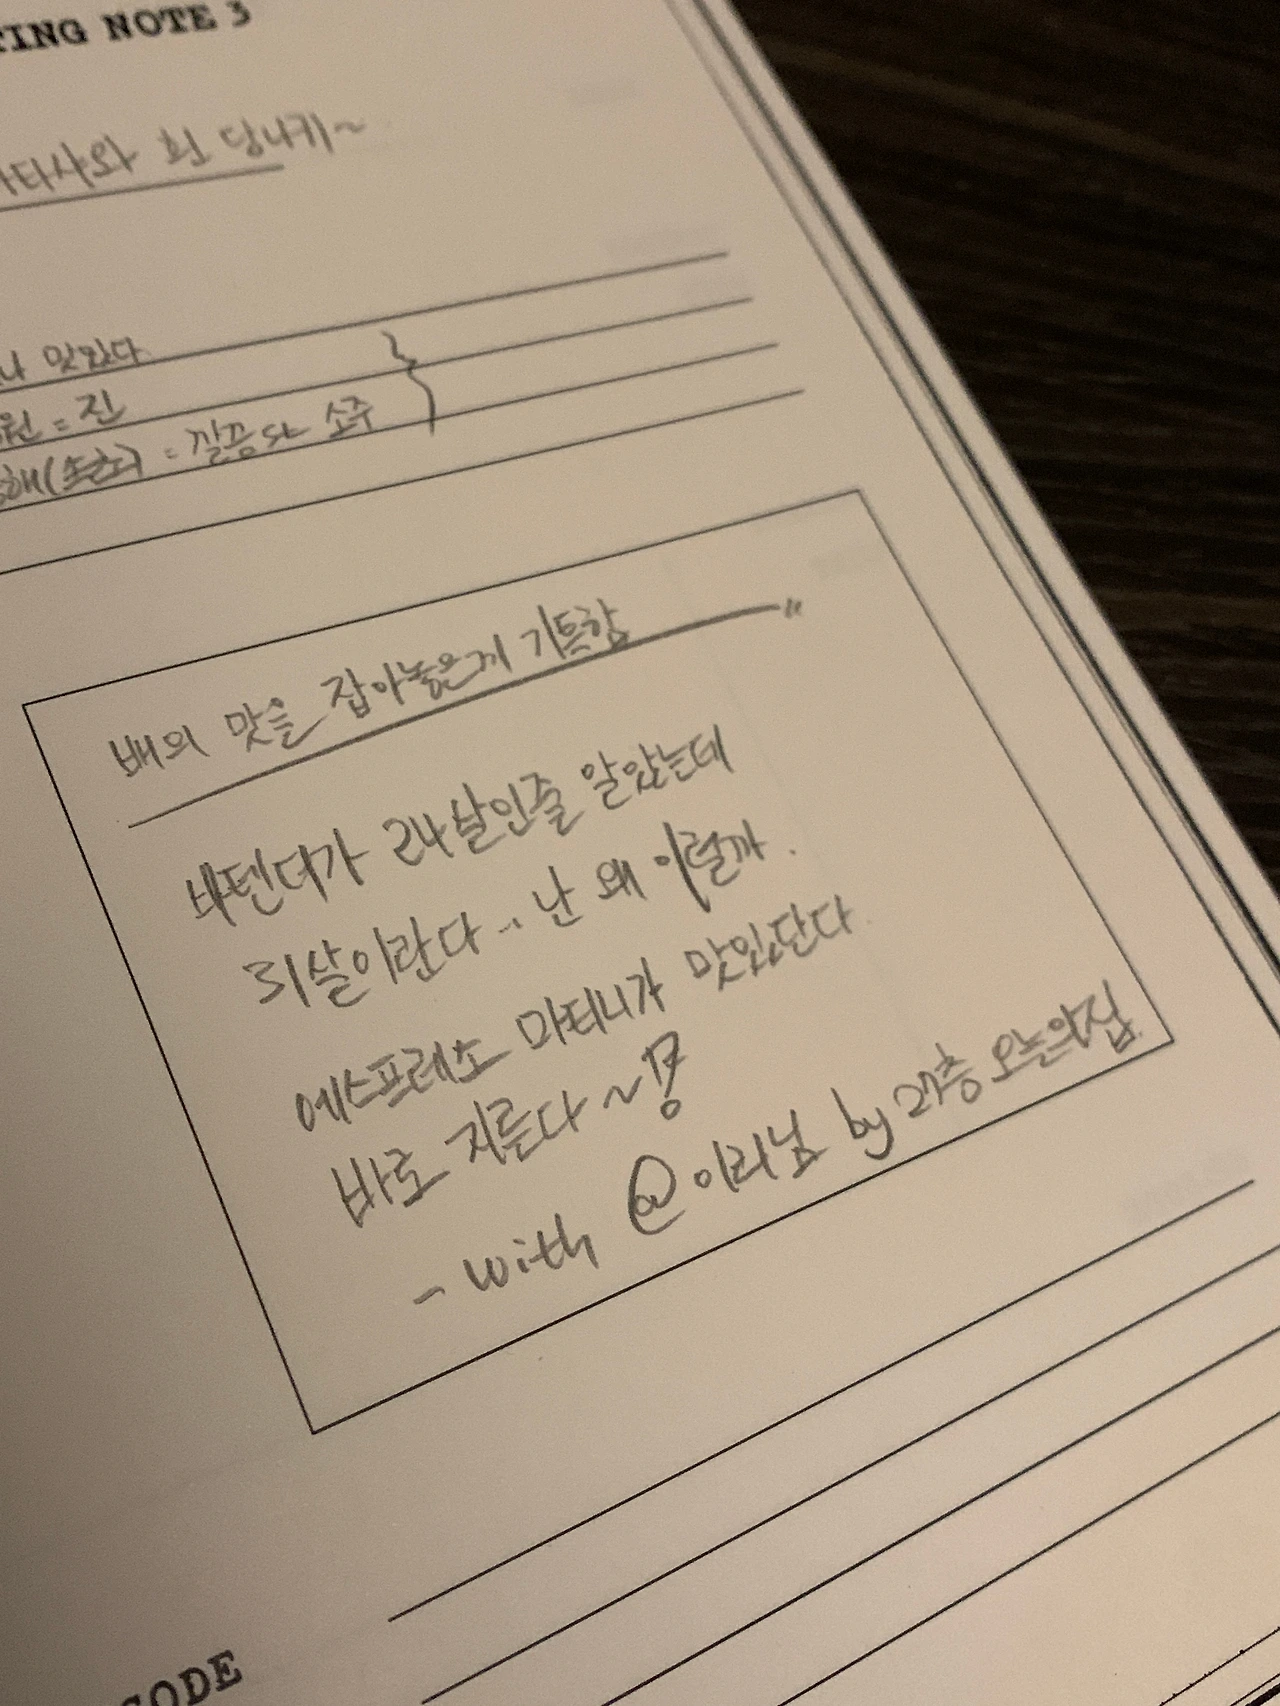 TING NOTE 3
타샤와 흰 당나귀~
맛있다
= 진
해(속초) = 깔끔 소주
배의 맛을 잡아놓은게 기특함 "
바텐더가 24살인줄 알았는데
31살이란다... 난 왜 이럴까.
에스프레소 마티니가 맛있단다.
바로 지른다 ~
- with @이리님 by 27층 오늘의집
ODE